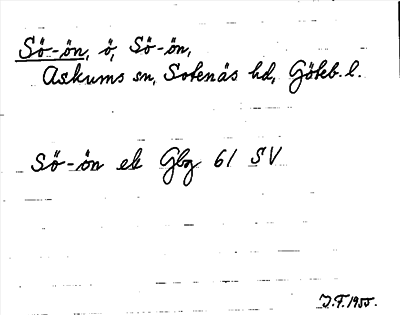 Sö-ön, ö, Sö-ön,
Askums sn, Sotenäs hd, Göteb. l.
Sö-ön ek Gbg 61 SV
J.F. 1955.